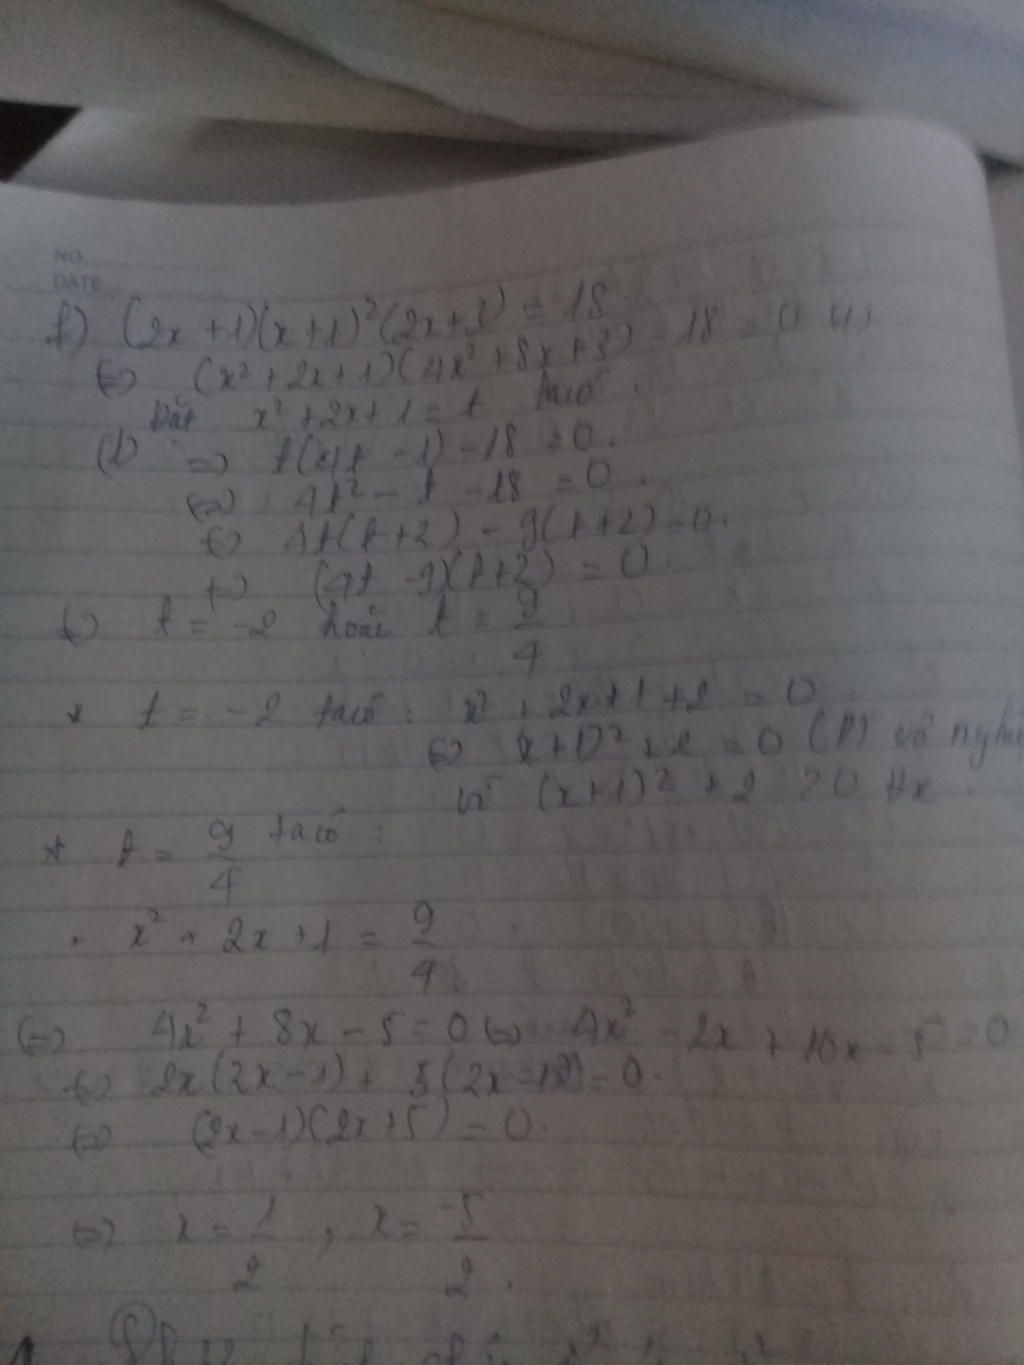 NO
DATE
f) (2x+1)(x+1)²(2x+3) = 18
⇔ (x²+2x+1)(4x²+8x+3) - 18 = 0 (1)
Đặt x²+2x+1 = t ta có
(1) ⇒ t(4t - 1) - 18 = 0.
⇔ 4t² - t - 18 = 0.
⇔ 4t(t+2) - 9(t+2) = 0.
⇔ (4t - 9)(t+2) = 0.
⇔ t = -2 hoặc t = 9/4
* t = -2 ta có: x² + 2x+1 +2 = 0
⇔ (x+1)² + 2 = 0 vô
vì (x+1)² + 2 > 0 ∀x.
* t = 9/4 ta có:
x² + 2x+1 = 9/4
⇔ 4x² + 8x - 5 = 0 ⇔ 4x² - 2x + 10x - 5 = 0
⇔ 2x(2x-1) + 5(2x-1) = 0.
⇔ (2x-1)(2x+5) = 0.
⇔ x = 1/2, x = -5/2.